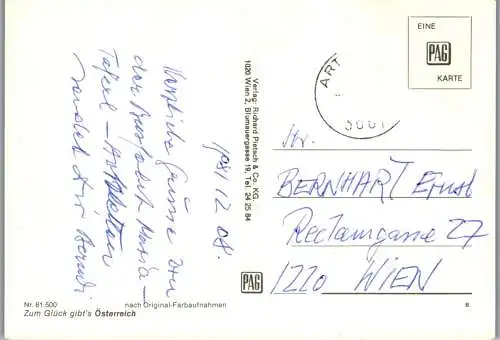 1981 12 08.
Herzliche Grüsse von
der Basilika Maria-
Taferl - Artstetten
sendet Dir Berndi
Nr. 61.500 nach Original-Farbaufnahmen
Zum Glück gibt's Österreich
Verlag: Richard Pietsch & Co. KG.
1020 Wien 2, Blumauergasse 19, Tel. 24 25 84
PAG
EINE
PAG
KARTE
ART
Hr.
BERNHART Ernst
Reclamgasse 27
1220 WIEN
8